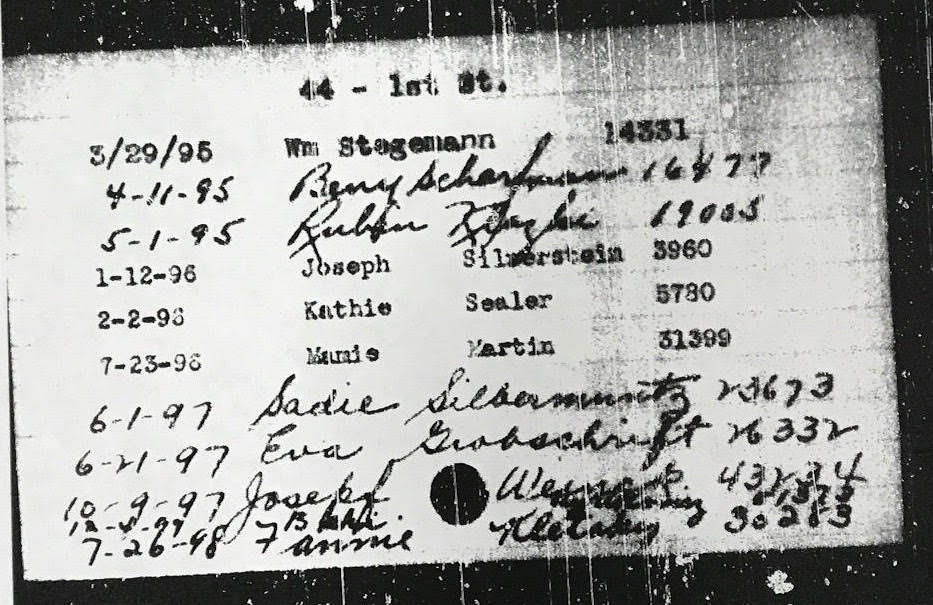 44 - 1st St.
3/29/95 Wm Stegemann 14331
4-11-95 Beny Scharfmann 16477
5-1-95 Rubin 19005
1-12-96 Joseph Silverstein 3960
2-2-96 Kathie Sealer 5780
7-23-96 Mamie Martin 31399
6-1-97 Sadie Silbermuntz 23673
6-21-97 Eva Grobschrift 26332
10-9-97 Joseph 43234
7-26-98 Fannie Kletzky 30283